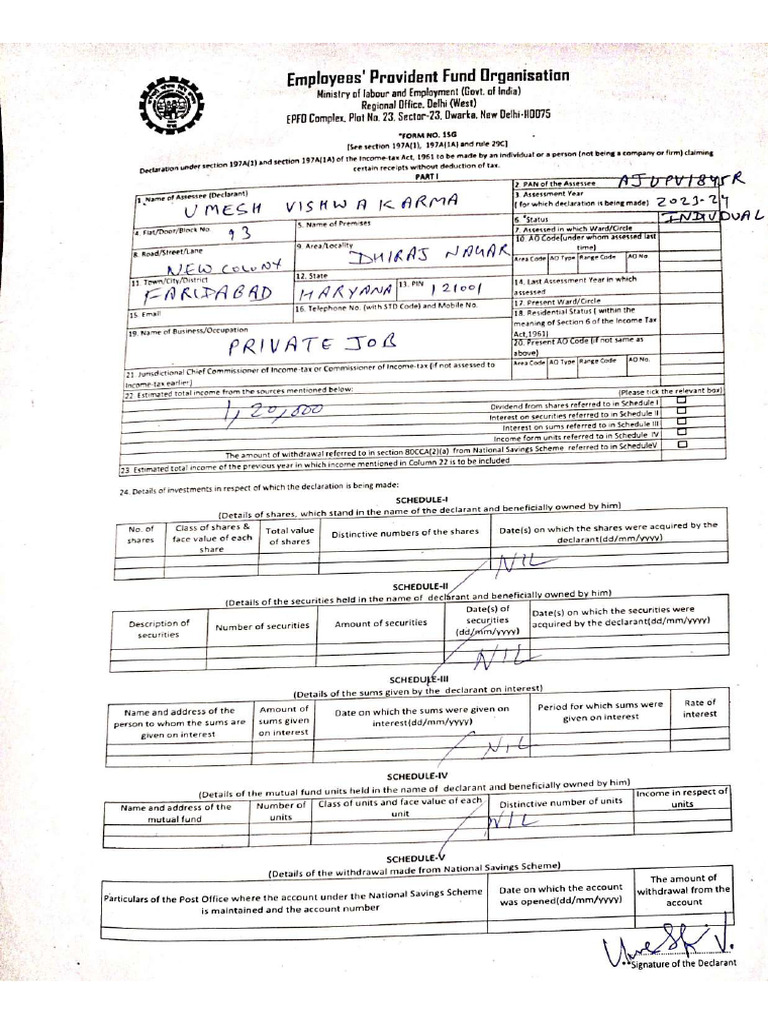 Employees' Provident Fund Organisation
Ministry of labour and Employment (Govt. of India)
Regional Office, Delhi (West)
EPFO Complex, Plot No. 23, Sector-23, Dwarka, New Delhi-110075
"FORM NO. 15G
[See section 197A(1), 197A(1A) and rule 29C]
Declaration under section 197A(1) and section 197A(1A) of the Income-tax Act, 1961 to be made by an individual or a person (not being a company or firm) claiming
certain receipts without deduction of tax.
PART I
1. Name of Assessee (Declarant)
UMESH VISHWAKARMA
2. PAN of the Assessee AJUPV1845R
3. Assessment Year
( for which declaration is being made) 2023-24
4. Flat/Door/Block No. 93
5. Name of Premises
6. *Status INDIVIDUAL
7. Assessed in which Ward/Circle
8. Road/Street/Lane
NEW COLONY
9. Area/Locality
DHIRAJ NAGAR
10. AO Code(under whom assessed last
time)
Area Code AO Type Range Code AO No
11. Town/City/District
FARIDABAD
12. State
HARYANA
13. PIN 121001
14. Last Assessment Year in which
assessed
15. Email
16. Telephone No. (with STD Code) and Mobile No.
17. Present Ward/Circle
18. Residential Status ( within the
meaning of Section 6 of the Income Tax
Act,1961)
19. Name of Business/Occupation
PRIVATE JOB
20. Present AO Code (if not same as
above)
Area Code AO Type Range Code AO No.
21. Jurisdictional Chief Commissioner of Income-tax or Commissioner of Income-tax (if not assessed to
Income-tax earlier)
22. Estimated total income from the sources mentioned below:
(Please tick the relevant box)
1,20,000
Dividend from shares referred to in Schedule I
Interest on securities referred to in Schedule II
Interest on sums referred to in Schedule III
Income form units referred to in Schedule IV
The amount of withdrawal referred to in section 80CCA(2)(a) from National Savings Scheme referred to in ScheduleV
23. Estimated total income of the previous year in which income mentioned in Column 22 is to be included
24. Details of investments in respect of which the declaration is being made:
SCHEDULE-I
(Details of shares, which stand in the name of the declarant and beneficially owned by him)
No. of
shares
Class of shares &
face value of each
share
Total value
of shares
Distinctive numbers of the shares
Date(s) on which the shares were acquired by the
declarant(dd/mm/yyyy)
NIL
SCHEDULE-II
(Details of the securities held in the name of declarant and beneficially owned by him)
Description of
securities
Number of securities
Amount of securities
Date(s) of
securities
(dd/mm/yyyy)
Date(s) on which the securities were
acquired by the declarant(dd/mm/yyyy)
NIL
SCHEDULE-III
(Details of the sums given by the declarant on interest)
Name and address of the
person to whom the sums are
given on interest
Amount of
sums given
on interest
Date on which the sums were given on
interest(dd/mm/yyyy)
Period for which sums were
given on interest
Rate of
interest
NIL
SCHEDULE-IV
(Details of the mutual fund units held in the name of declarant and beneficially owned by him)
Name and address of the
mutual fund
Number of
units
Class of units and face value of each
unit
Distinctive number of units
Income in respect of
units
NIL
SCHEDULE-V
(Details of the withdrawal made from National Savings Scheme)
Particulars of the Post Office where the account under the National Savings Scheme
is maintained and the account number
Date on which the account
was opened(dd/mm/yyyy)
The amount of
withdrawal from the
account
Umesh V.
Signature of the Declarant